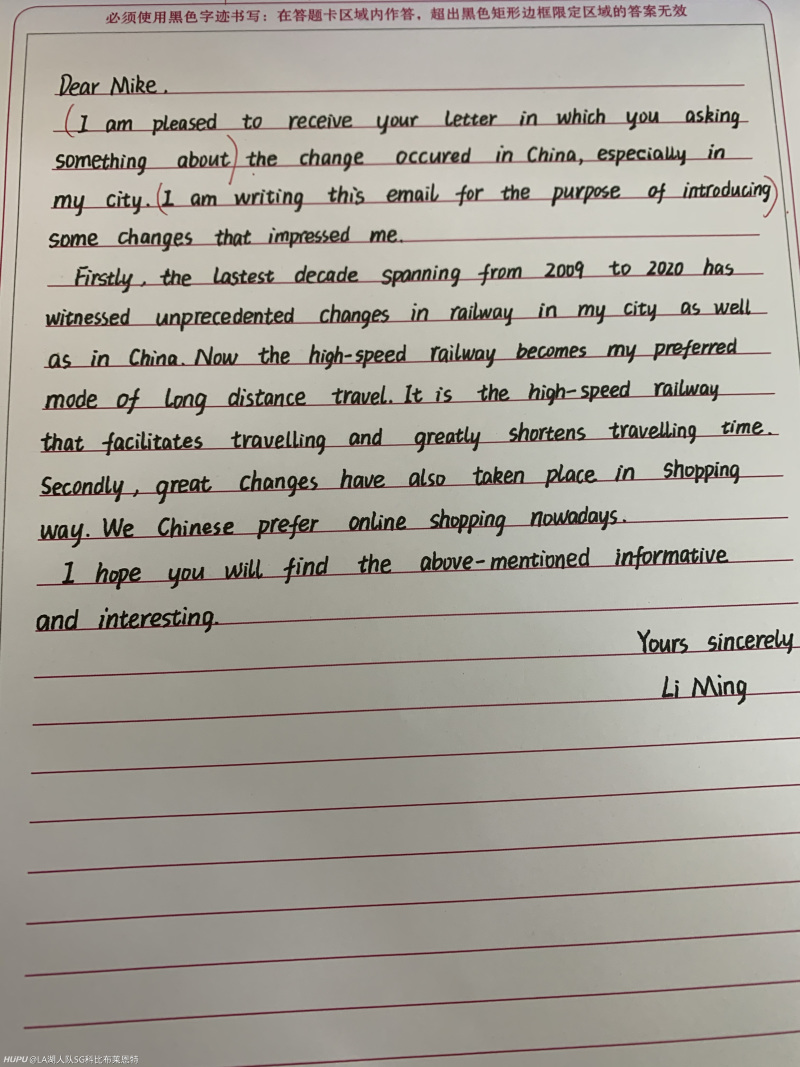 必须使用黑色字迹书写：在答题卡区域内作答，超出黑色矩形边框限定区域的答案无效
Dear Mike.
(I am pleased to receive your letter in which you asking
something about) the change occured in China, especially in
my city. (I am writing this email for the purpose of introducing)
some changes that impressed me.
Firstly, the lastest decade spanning from 2009 to 2020 has
witnessed unprecedented changes in railway in my city as well
as in China. Now the high-speed railway becomes my preferred
mode of long distance travel. It is the high-speed railway
that facilitates travelling and greatly shortens travelling time.
Secondly, great changes have also taken place in shopping
way. We Chinese prefer online shopping nowadays.
I hope you will find the above-mentioned informative
and interesting.
Yours sincerely
Li Ming
HUPU @LA湖人队SG科比布莱恩特